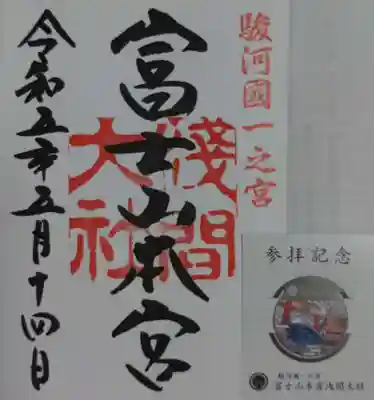 駿河國一之宮
富士山本宮
淺間大社
令和五年五月十四日
参拝記念
駿河國一之宮
富士山本宮浅間大社